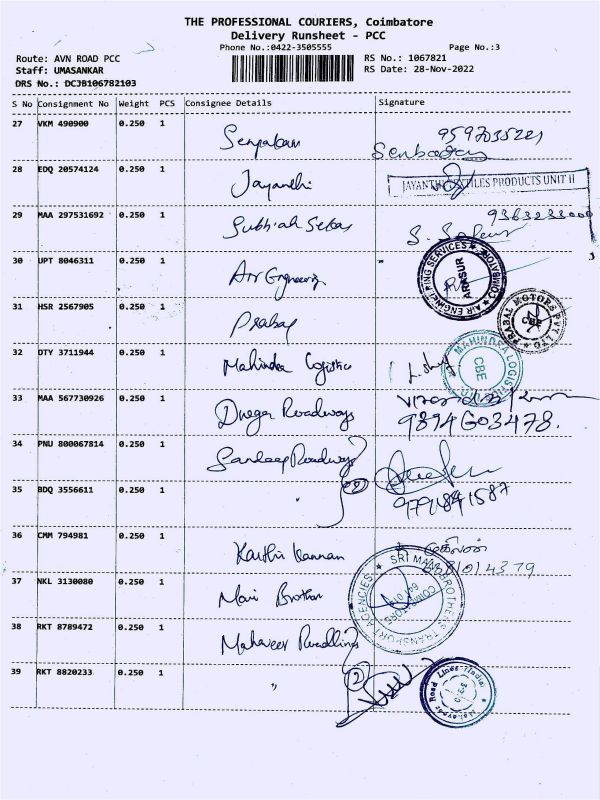 THE PROFESSIONAL COURIERS, Coimbatore
Delivery Runsheet - PCC
Phone No.:0422-3505555
Page No.:3
Route: AVN ROAD PCC
RS No.: 1067821
Staff: UMASANKAR
RS Date: 28-Nov-2022
DRS No.: DCJB106782103
S No Consignment No Weight PCS Consignee Details Signature
27 VKM 490900 0.250 1
28 EDQ 20574124 0.250 1 Jayanthi
JAYANTHI TEXTILES PRODUCTS UNIT II
29 MAA 297531692 0.250 1
30 UPT 8046311 0.250 1
AIR ENGINEERING SERVICES COIMBATORE
ARASUR
31 HSR 2567905 0.250 1 Prabal
PRABAL MOTORS PVT LTD
CBE
32 DTY 3711944 0.250 1 Mahindra Logistics
MAHINDRA LOGISTICS
CBE
33 MAA 567730926 0.250 1 Durga Roadways
9894603478.
34 PNU 800067814 0.250 1 Sandeep Roadways
35 BDQ 3556611 0.250 1 " (2)
9791841587
36 CMM 794981 0.250 1 Karthi Kannan
முகிலன்
37 NKL 3130080 0.250 1 Mani Brother
SRI MANI BROTHERS TRANSPORT AGENCIES
38 RKT 8789472 0.250 1 Mahaveer Roadlines
39 RKT 8820233 0.250 1 " (2)